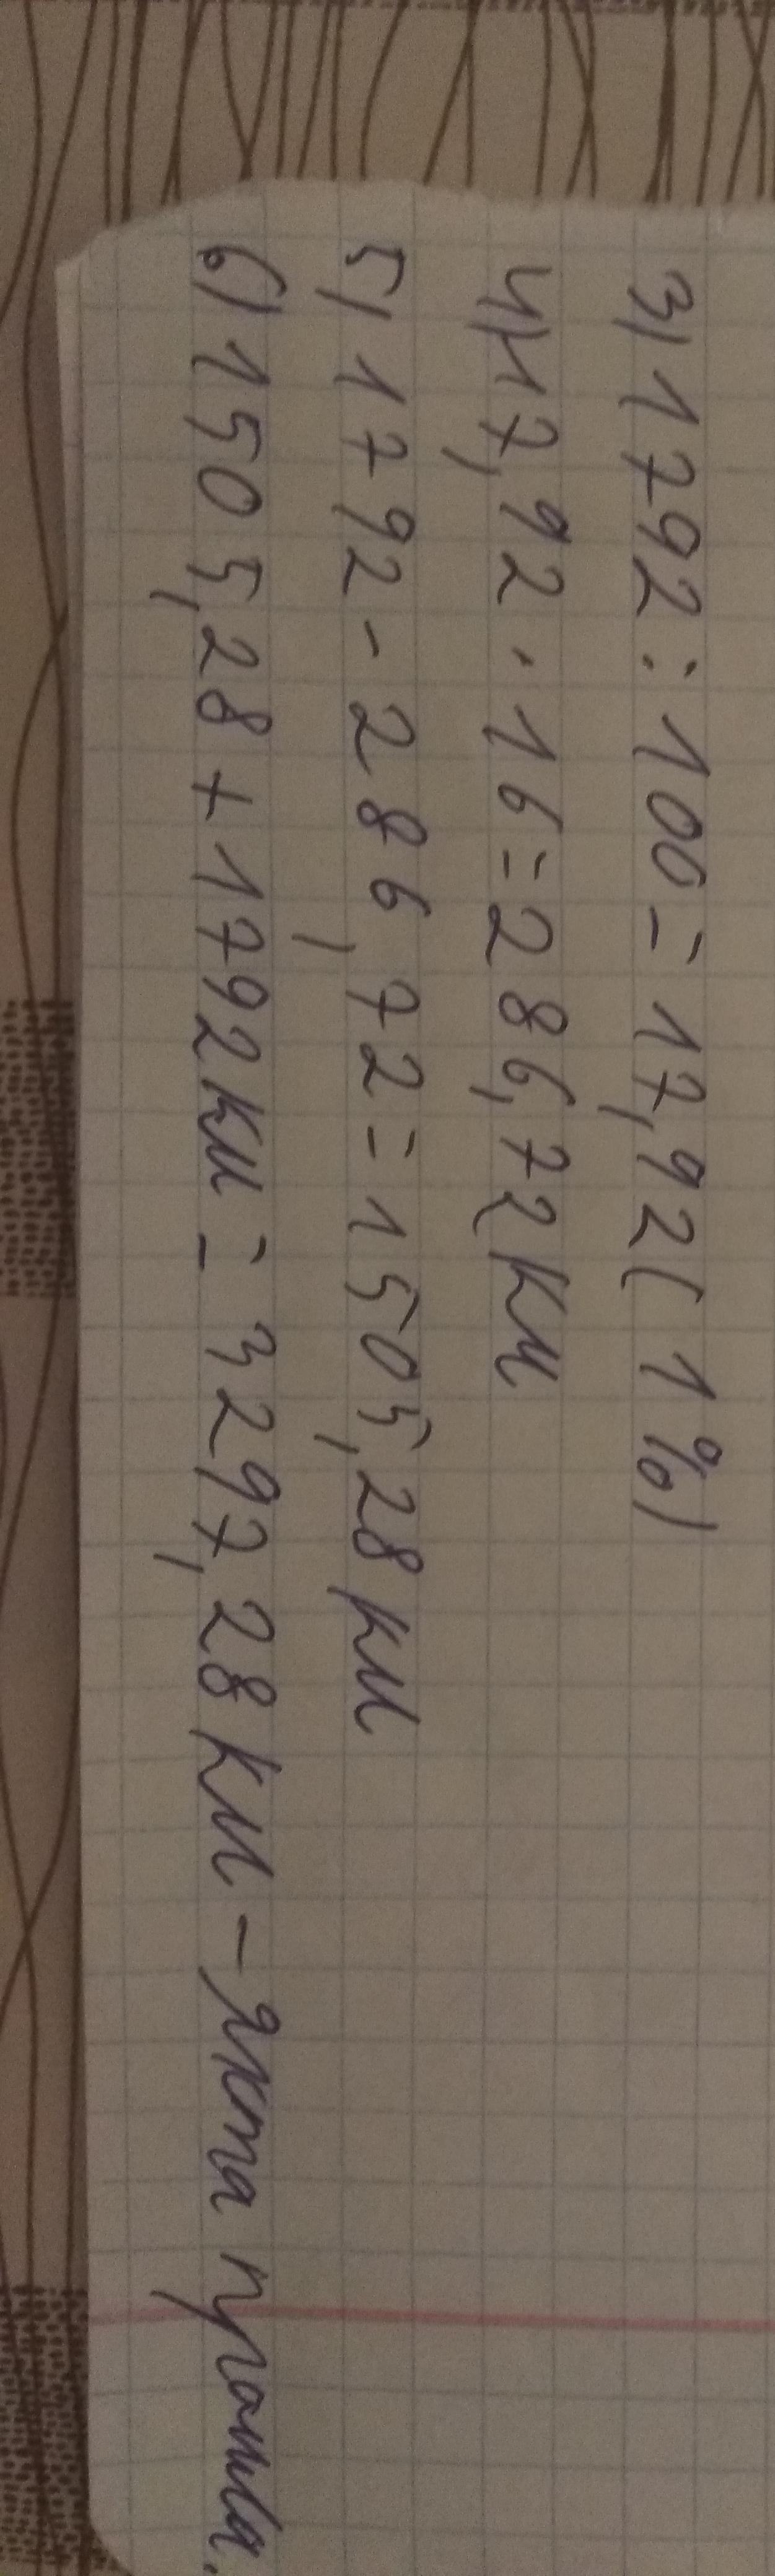 3) 1792 : 100 = 17,92 (1%)
4) 17,92 · 16 = 286,72 км
5) 1792 - 286,72 = 1505,28 км
6) 1505,28 + 1792 км = 3297,28 км - Яхта прошла.